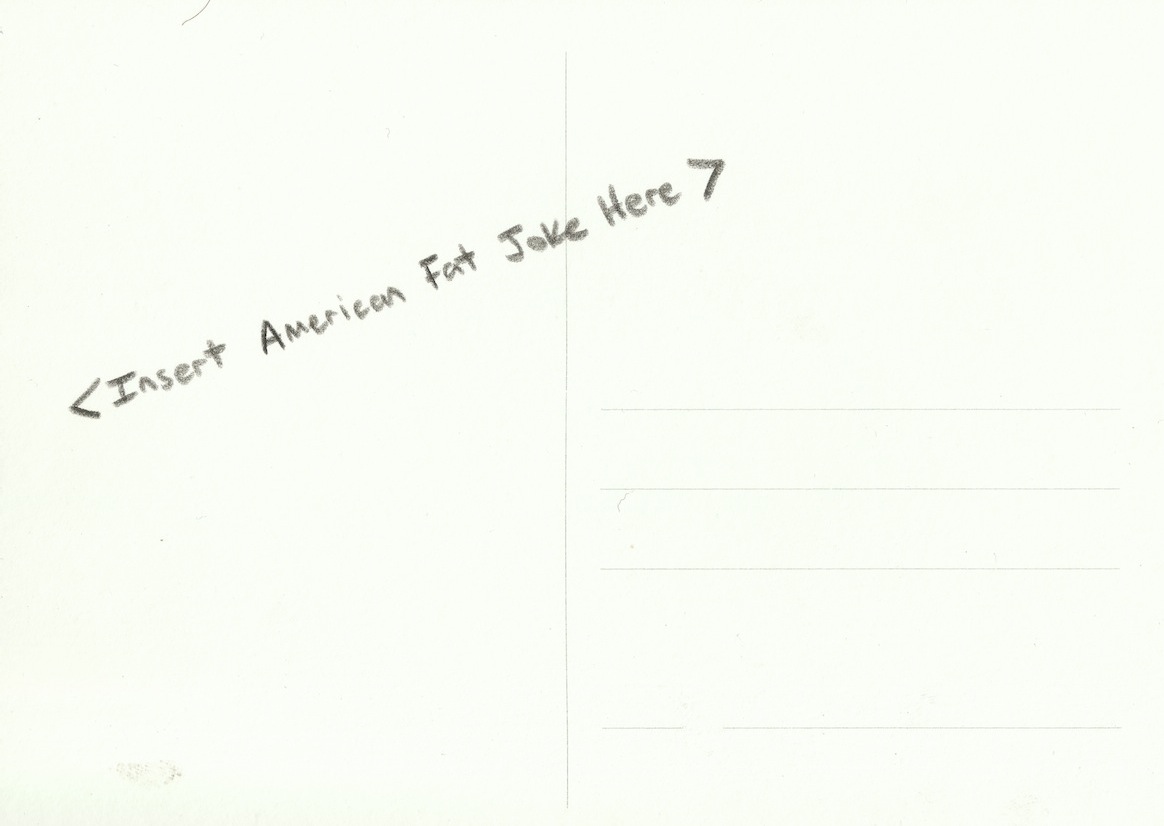 <Insert American Fat Joke Here>